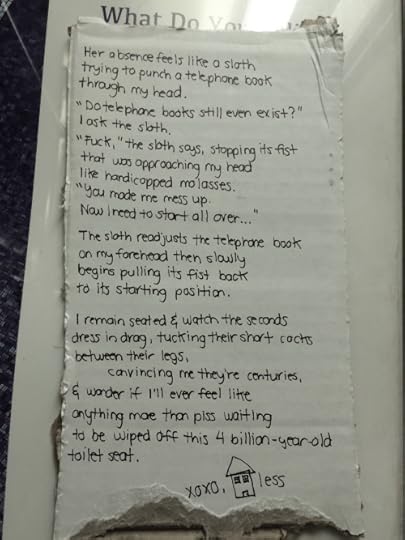 What Do
Her absence feels like a sloth
trying to punch a telephone book
through my head.
"Do telephone books still even exist?"
I ask the sloth.
"Fuck," the sloth says, stopping its fist
that was approaching my head
like handicapped molasses.
"You made me mess up.
Now I need to start all over..."
The sloth readjusts the telephone book
on my forehead then slowly
begins pulling its fist back
to its starting position.
I remain seated & watch the seconds
dress in drag, tucking their short cocks
between their legs,
convincing me they're centuries,
& wonder if I'll ever feel like
anything more than piss waiting
to be wiped off this 4 billion-year-old
toilet seat.
xoxo, less